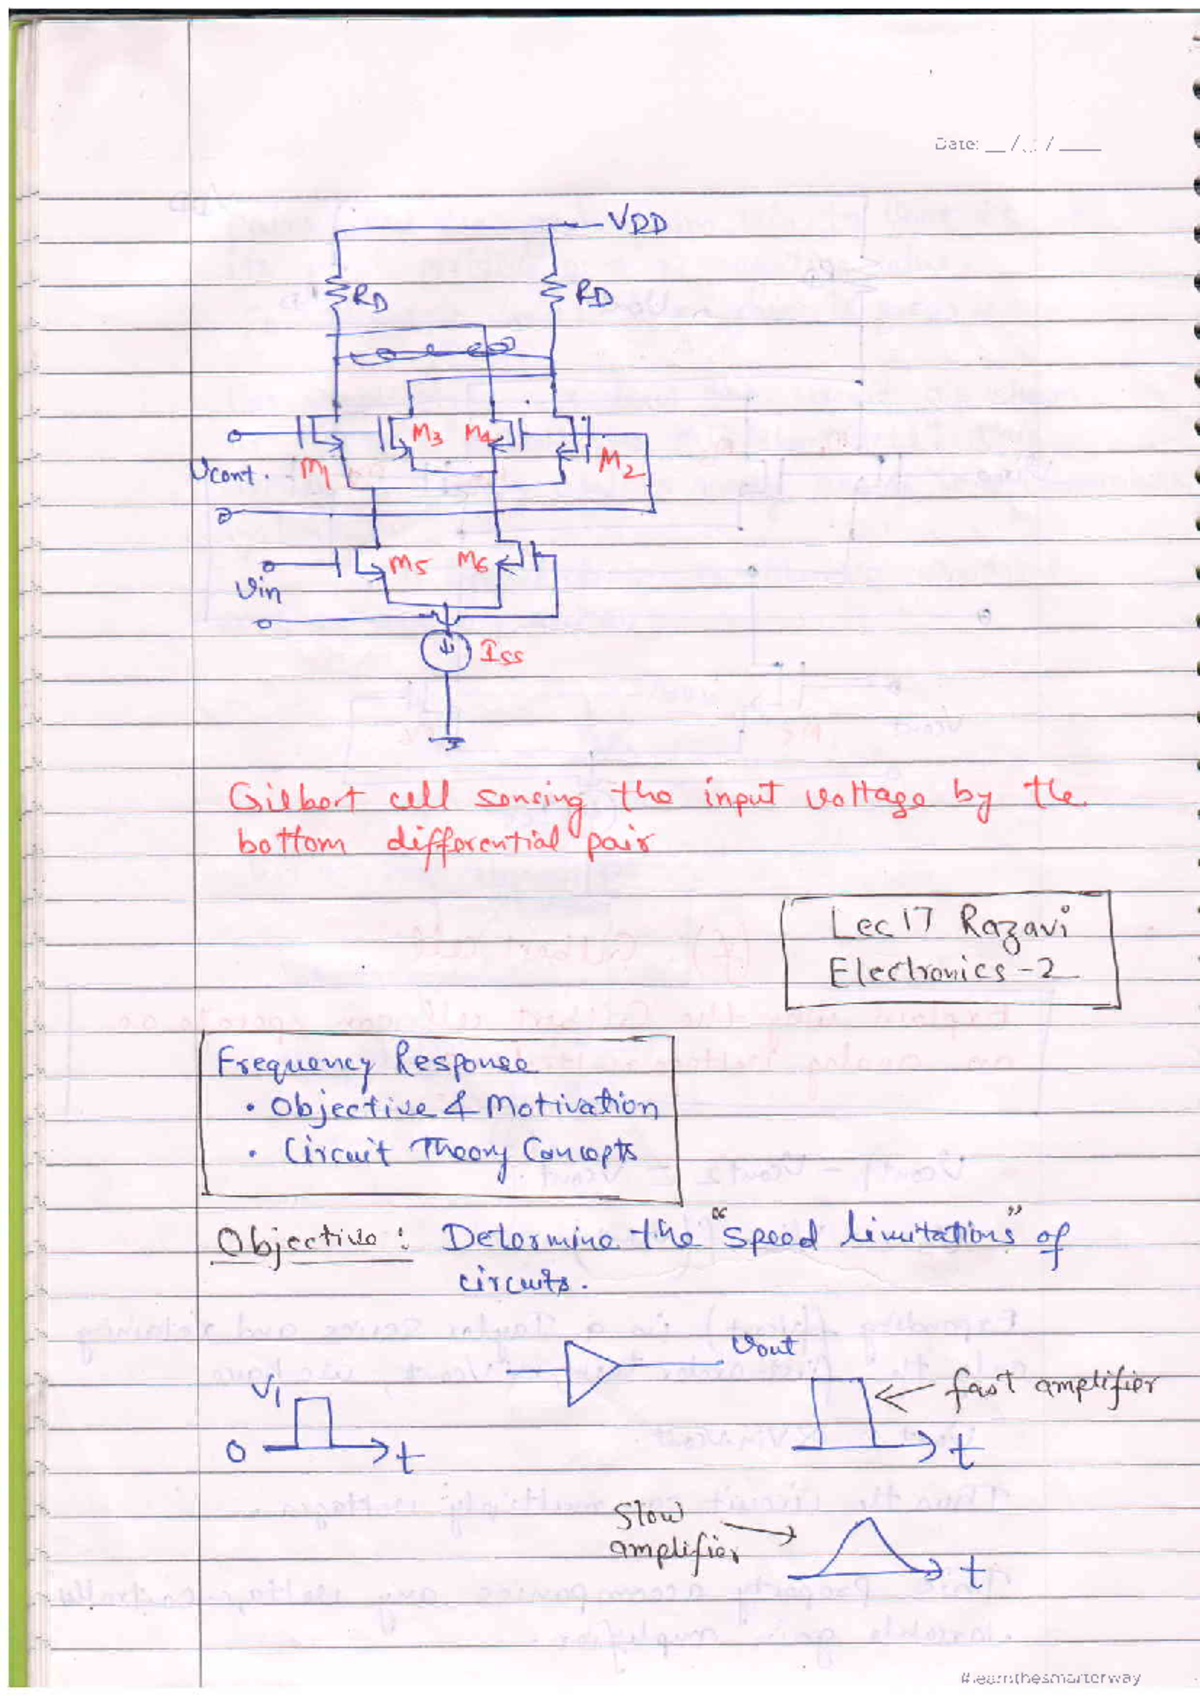 Date: __/__/____
VDD
RD
RD
M3 M4
Vcont. M1 M2
M5 M6
Vin
ISS
Gilbert cell sensing the input voltage by the
bottom differential pair
Lec 17 Razavi
Electronics-2
Frequency Response
• Objective & Motivation
• Circuit Theory Concepts
Objective: Determine the "speed limitations" of
circuits.
Vout
V1
fast amplifier
0 t
t
Slow
amplifier
t
#learnthesmarterway